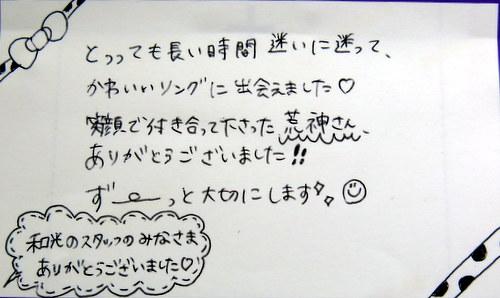 とっっても長い時間 迷いに迷って、
かわいいリングに出会えました♡
笑顔で付き合って下さった 荒神さん、
ありがとうございました!!
ず〜っと大切にします
和光のスタッフのみなさま
ありがとうございました♡